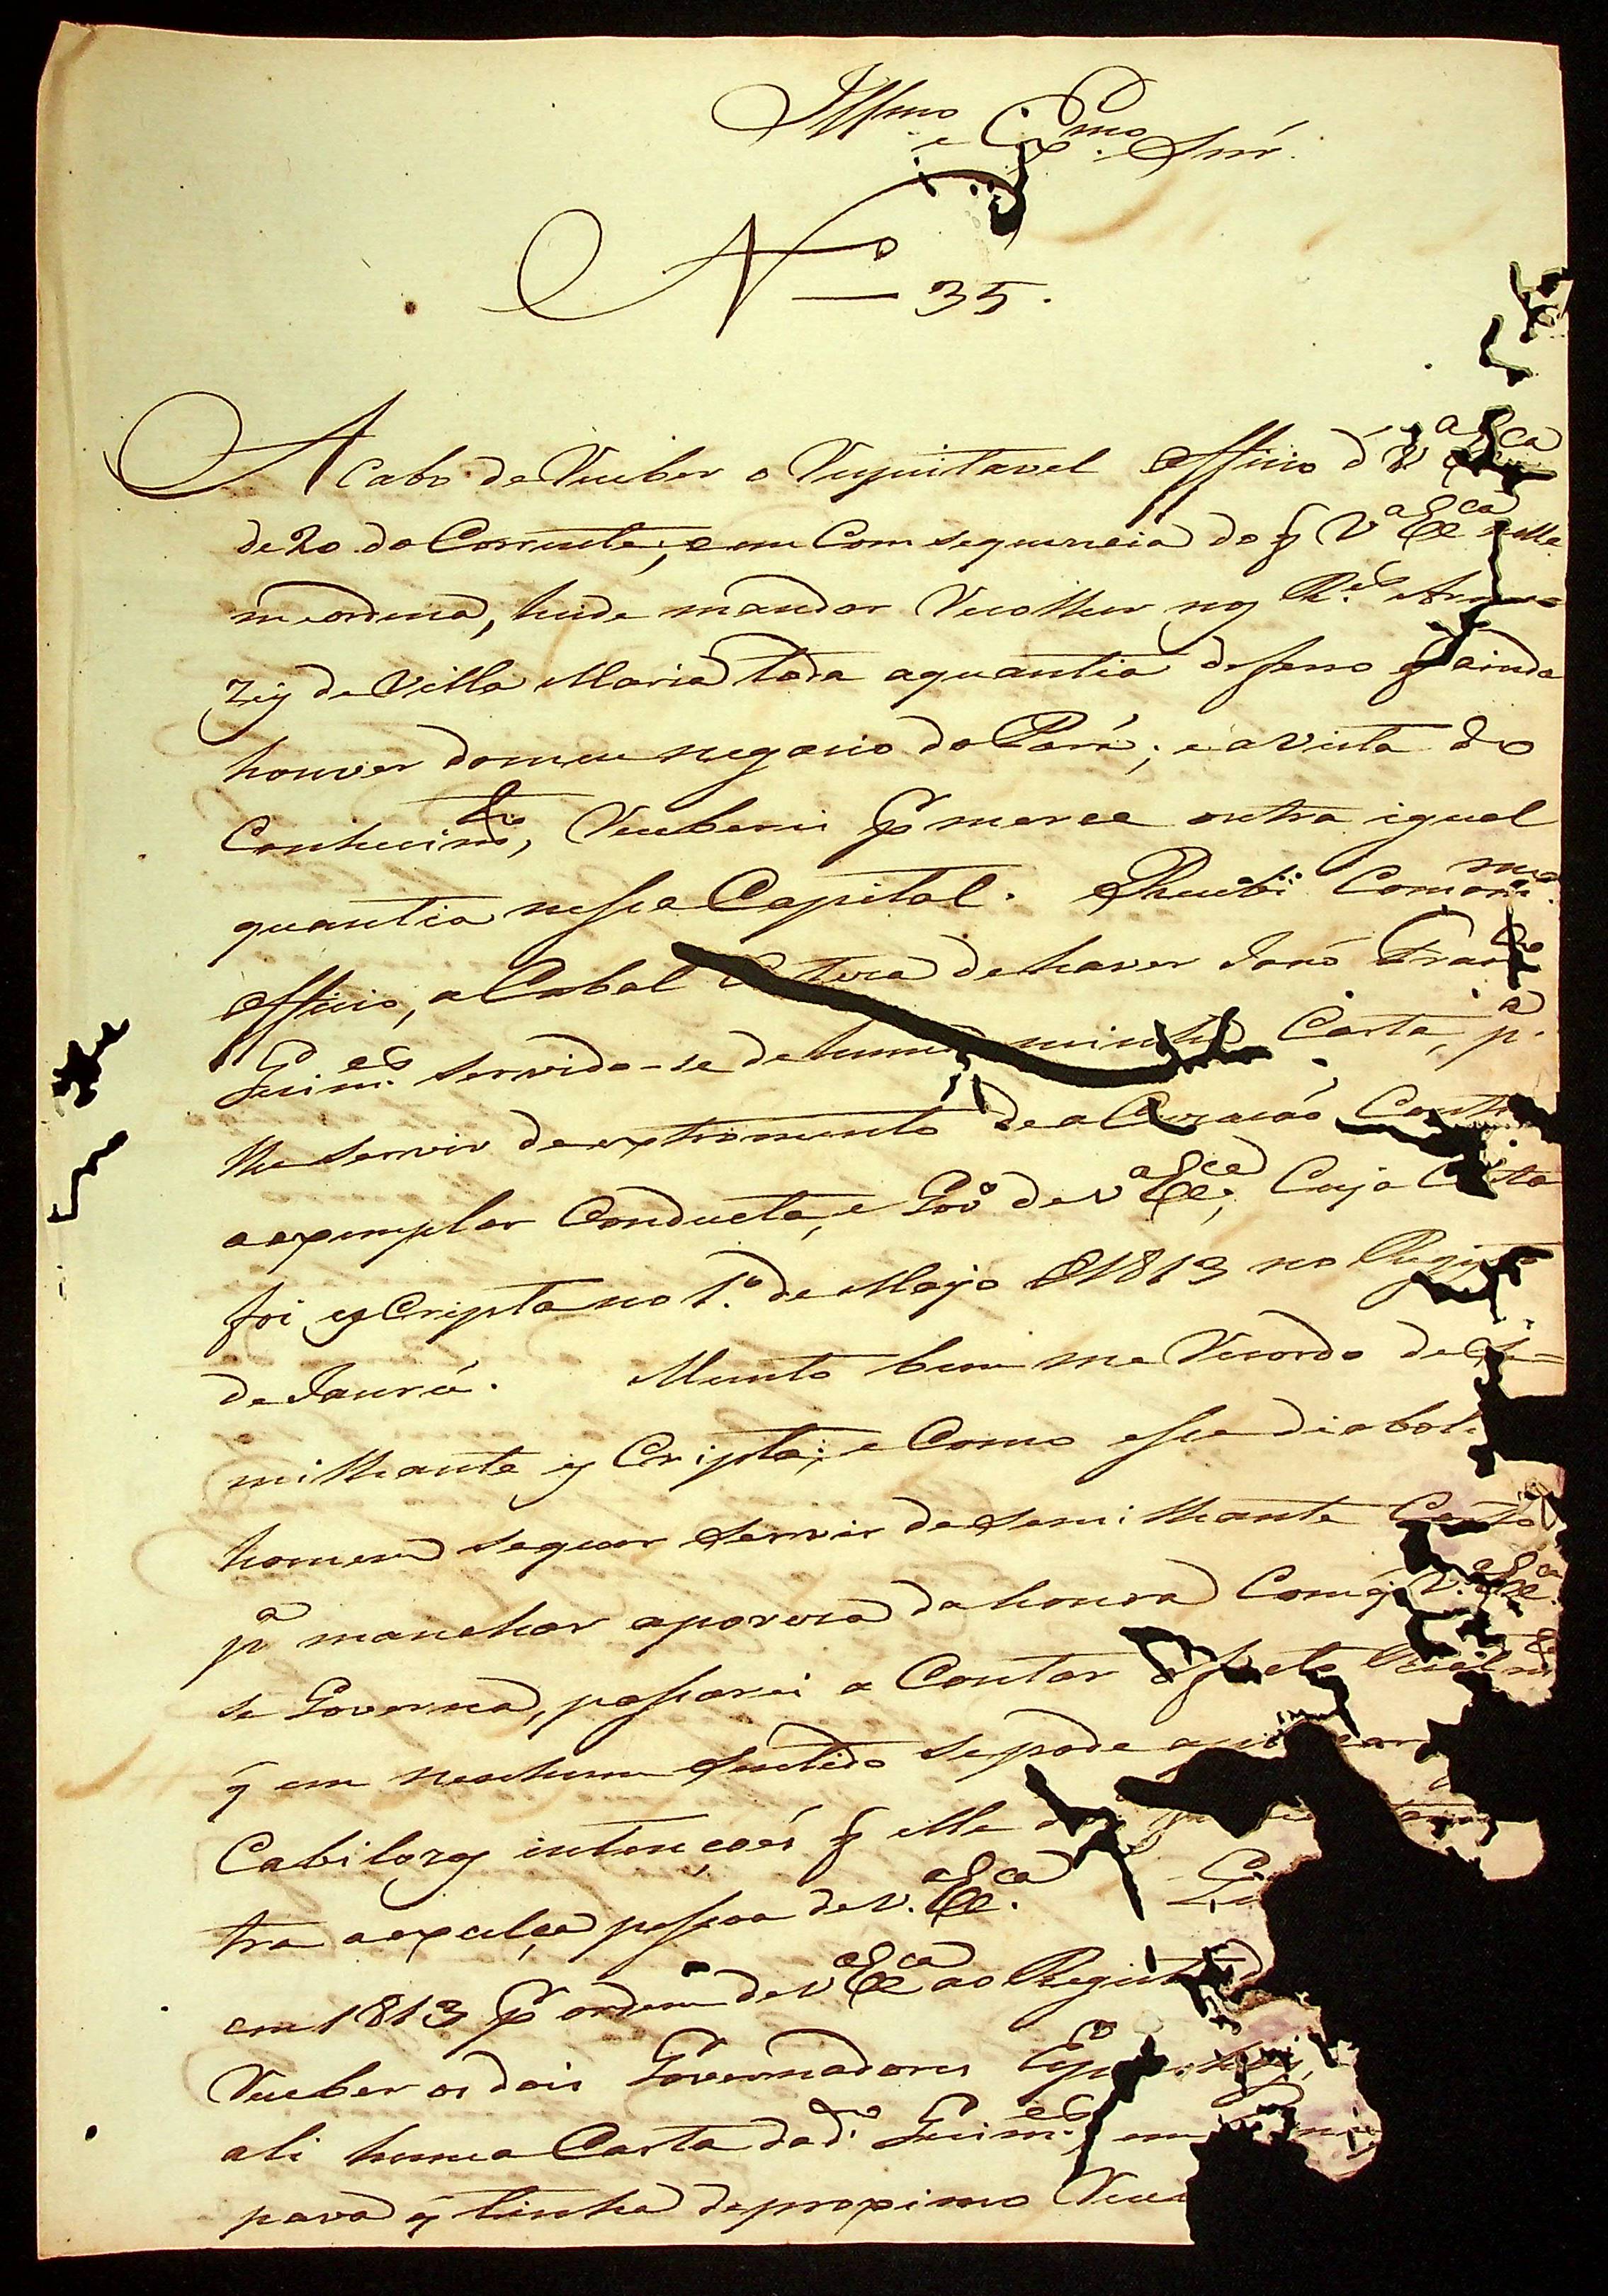 Illmo e Exmo Snr.
No — 35.
Acabo de Receber o Respeitavel Officio d' Va Exca
de 20 do Corrente, e em Comsequencia do q Va Exca nelle
me ordena, hirde mandar Recolher nos Rs. Arma=
zes de Villa Maria toda a quantia de ferro q ainda
houver do meu negocio do Pará; e a vista do
Conhecimto, Receberei pr merce outra igual
quantia nessa Capital. Recebi Com o mmo
Officio, a Cabal Certeza de haver Janó Franco
Guimes servido-se de huma minha Carta, pa
lhe servir de extromento de aCuzacaó Contra
a exemplar Conducta, e Govo de Va Exca, Cuja Carta
foi esCripta no 1o de Mayo d 1813 no Registo
de Jaurú. Munto bem me Recordo de Se=
milhante esCripta; e Como esse diaboli
homem se quer servir de Semilhante Carta
pa manchar a pureza da honra Com q V. Exca
se Governa, passarei a Contar o facto Realmte
q em nenhum Sentido se pode
Cabilozas intençoés q elle
tra a excelça pessoa de V. Exca.
em 1813 pr ordem de V Exca ao Registo
Receber os dois Governadores
ali huma Carta do do Guimes, em
pava q tinha de proximo